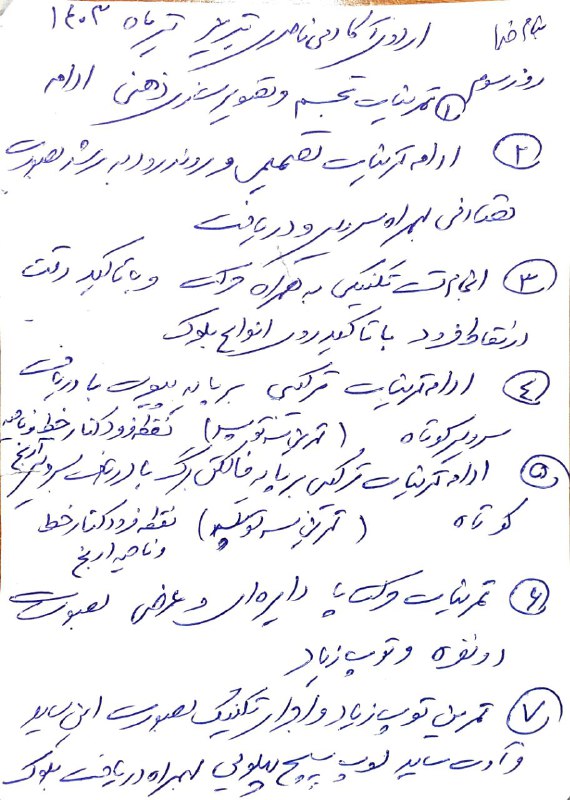 بنام خدا اردوی آکادمی ناصری تبریز تیر ماه ۱۴۰۳
روز سوم ① تمرینات تجسم و تصویرسازی ذهنی ادامه
② ادامه تمرینات تصمیمی و روند رو به رشد بصورت
تصادفی بهمراه سرویس و دریافت
③ انجام تست تکنیکی به همراه حرکت و با تاکید دقت
در نقاط فرود با تاکید روی انواع بلوک
④ ادامه تمرینات ترکیبی بر پایه پیوت با دریافت
سرویس کوتاه (تمرین سه توپه) نقطه فرود کنار خط و ناحیه اریج
⑤ ادامه تمرینات ترکیبی بر پایه فالکن برگ با دریافت سرویس
کوتاه (تمرین سه توپه) نقطه فرود کنار خط
و ناحیه اریج
⑥ تمرینات حرکت پا دایره‌ای و عرضی بصورت
دو نفره و توپ زیاد
⑦ تمرین توپ زیاد و اجرای تکنیک بصورت این ساید
و آوت ساید لوپ پیچ پهلویی بهمراه دریافت بلوک